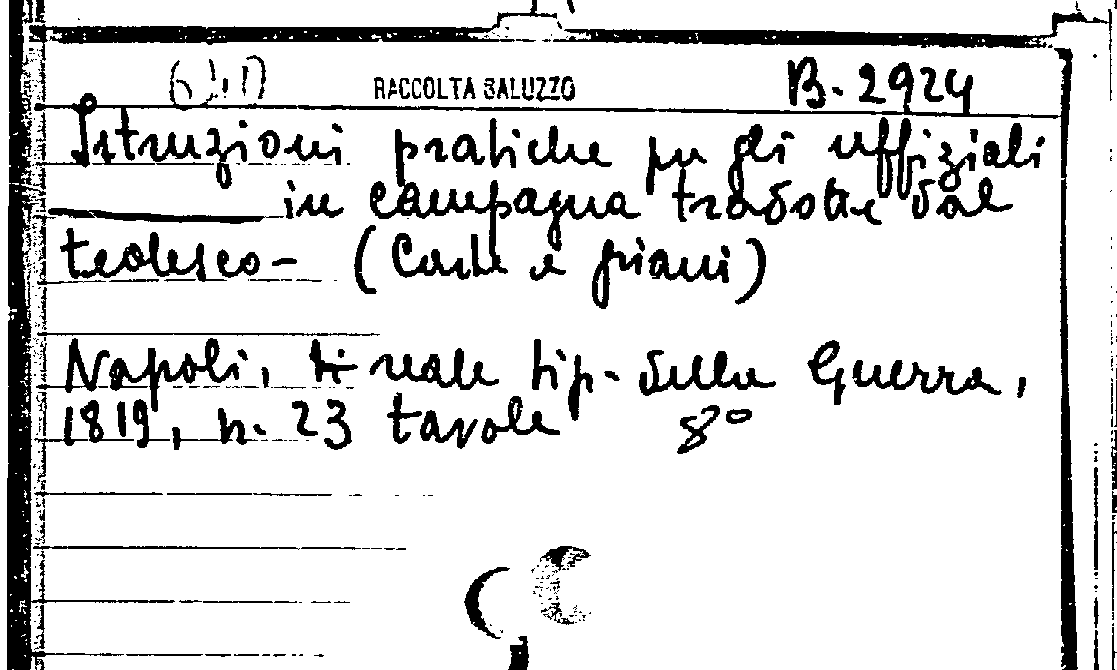 RACCOLTA SALUZZO B. 2924
Istruzioni pratiche per gli uffiziali
in campagna tradotte dal
tedesco - (Carte e piani)
Napoli, reale tip. della Guerra,
1819, n. 23 tavole 8°